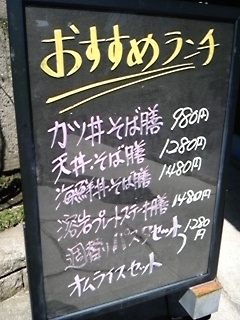 おすすめランチ
カツ丼・そば膳 980円
天丼・そば膳 1280円
海鮮丼・そば膳 1480円
溶岩プレートステーキ膳 1480円
週替りパスタセット 1280円
オムライスセット